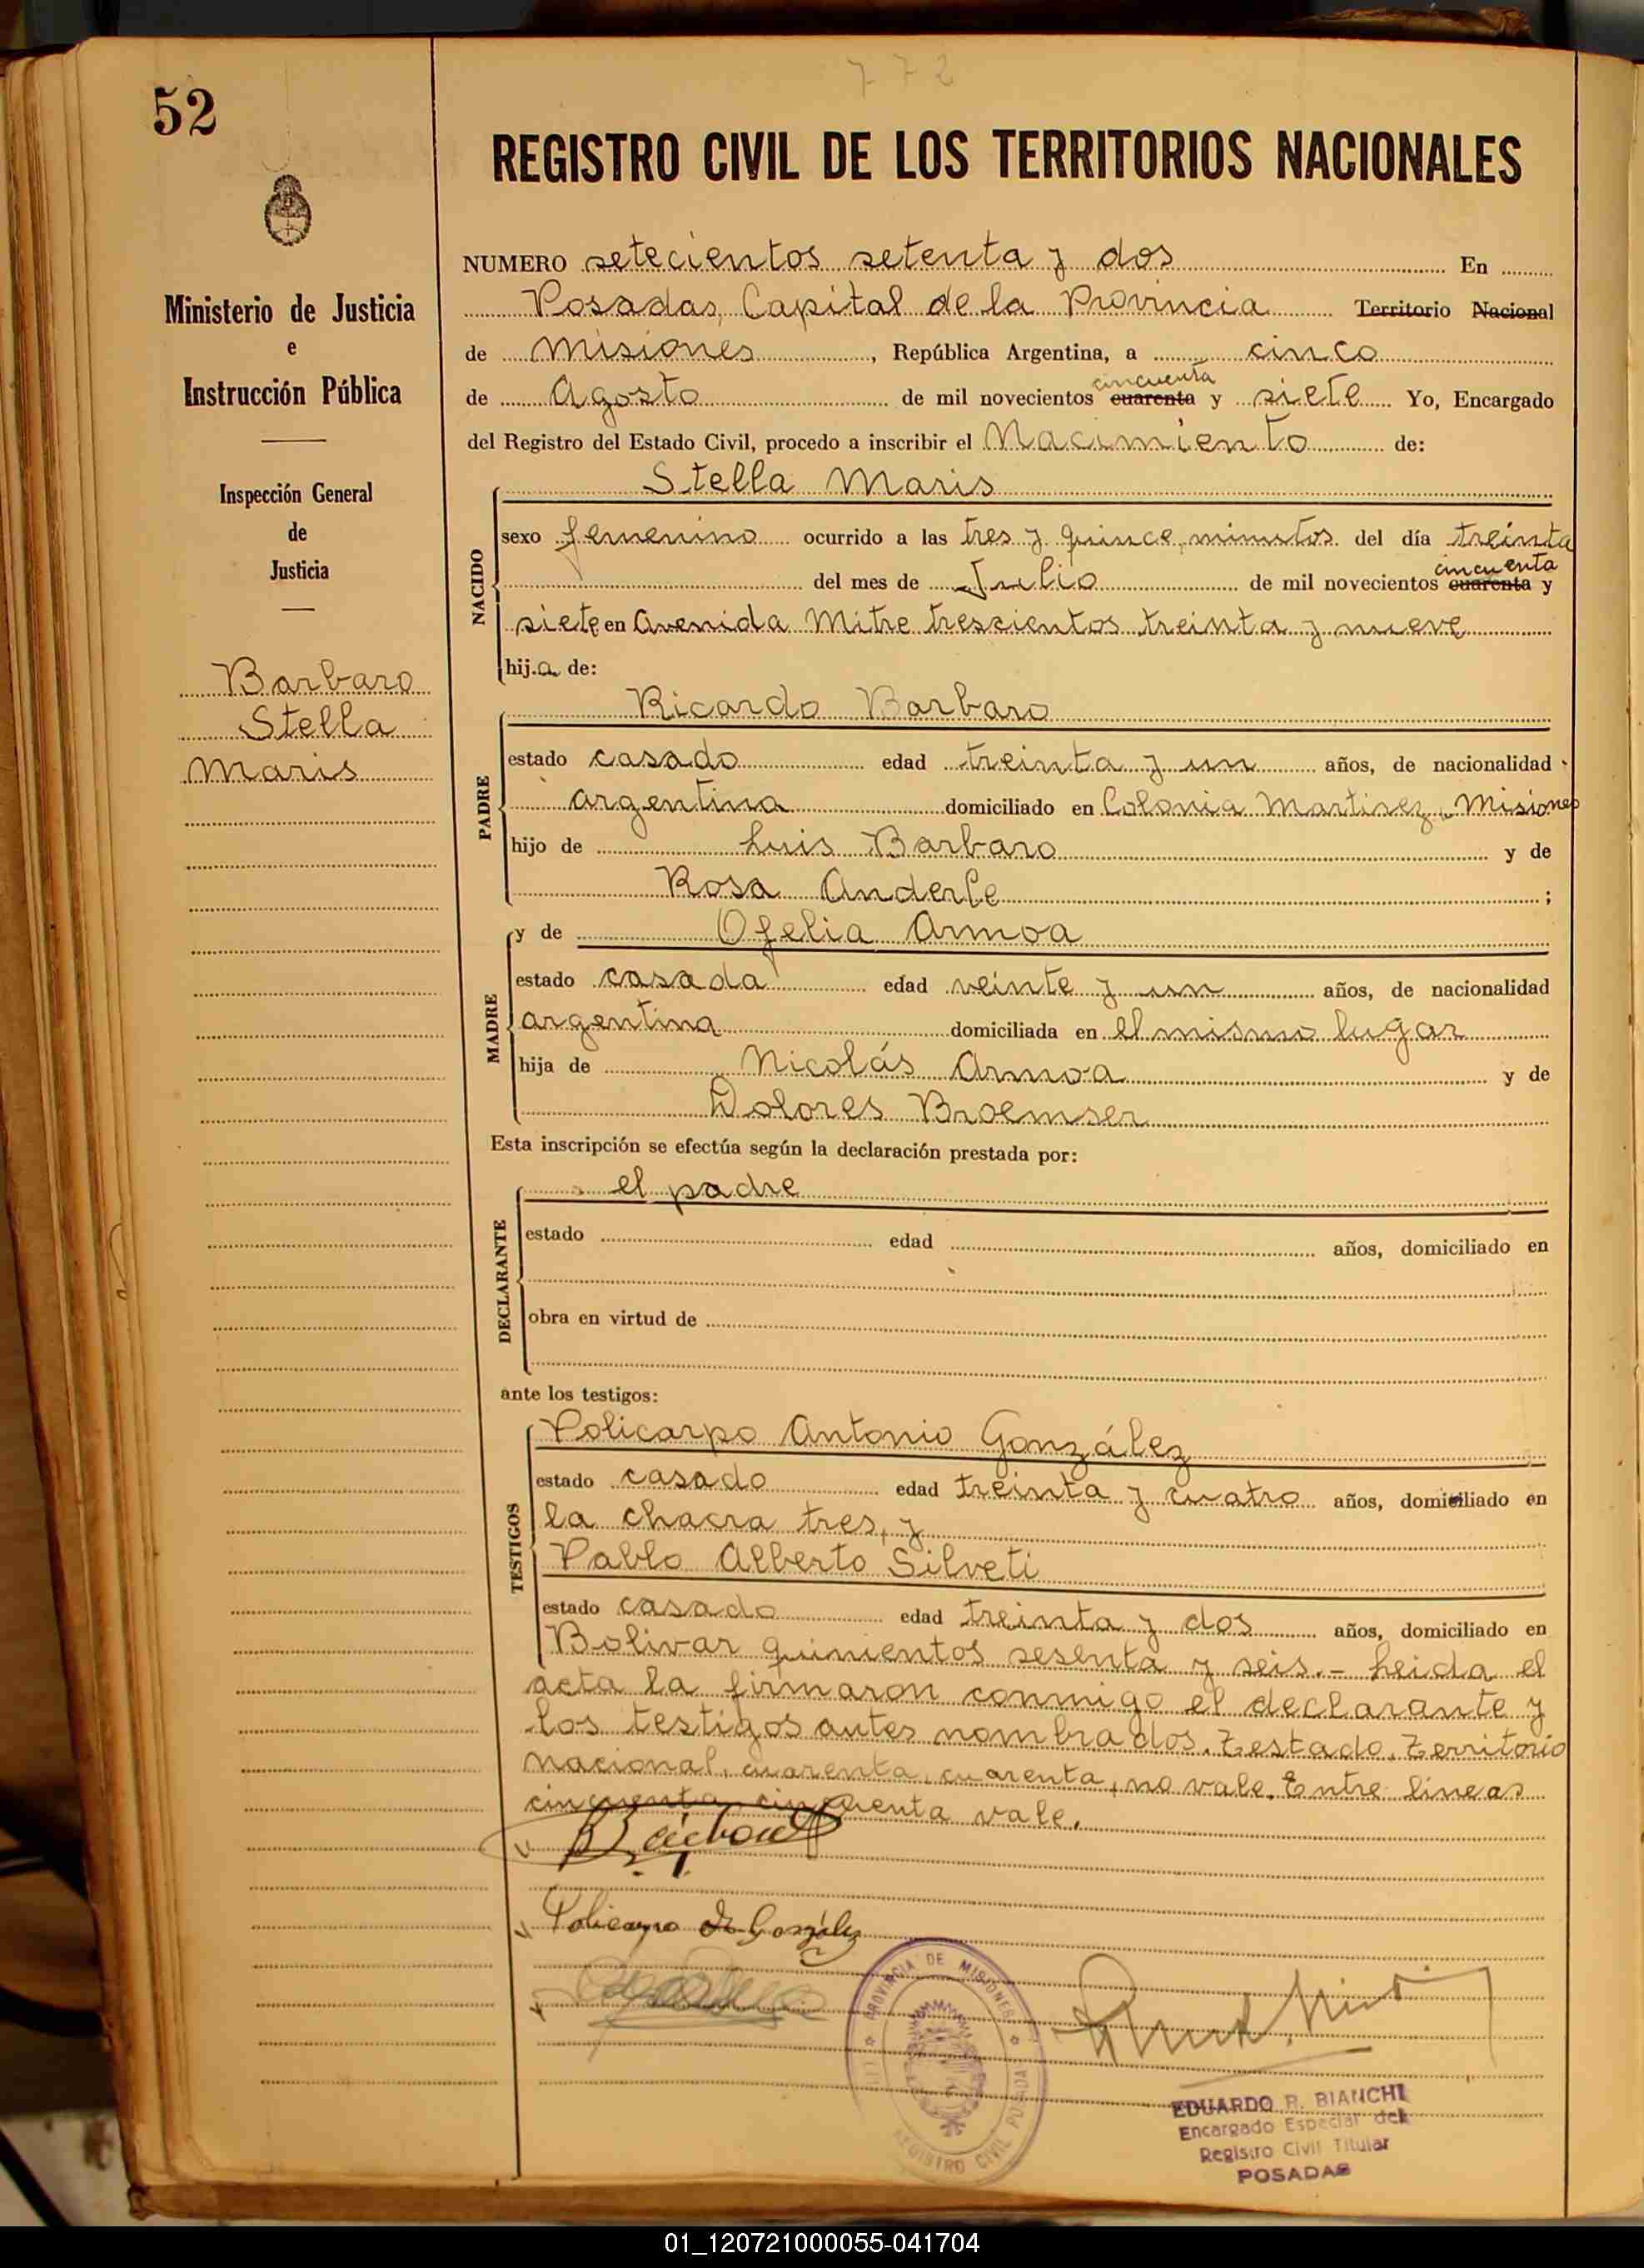 772
52
REGISTRO CIVIL DE LOS TERRITORIOS NACIONALES
Ministerio de Justicia
e
Instrucción Pública
Inspección General
de
Justicia
Barbaro
Stella
Maris
NUMERO setecientos setenta y dos En
Posadas, Capital de la Provincia Territorio Nacional
de Misiones, República Argentina, a cinco
cincuenta
de Agosto de mil novecientos cuarenta y siete Yo, Encargado
del Registro del Estado Civil, procedo a inscribir el Nacimiento de:
NACIDO
Stella Maris
sexo femenino ocurrido a las tres y quince minutos del día treinta
cincuenta
del mes de Julio de mil novecientos cuarenta y
siete en Avenida Mitre trescientos treinta y nueve
hija de:
PADRE
Ricardo Barbaro
estado casado edad treinta y un años, de nacionalidad
argentina domiciliado en Colonia Martinez, Misiones
hijo de Luis Barbaro y de
Rosa Anderle;
MADRE
y de Ofelia Armoa
estado casada edad veinte y un años, de nacionalidad
argentina domiciliada en el mismo lugar
hija de Nicolás Armoa y de
Dolores Broemser
Esta inscripción se efectúa según la declaración prestada por:
DECLARANTE
el padre
estado edad años, domiciliado en
obra en virtud de
ante los testigos:
TESTIGOS
Policarpo Antonio González
estado casado edad treinta y cuatro años, domiciliado en
la chacra tres, y
Pablo Alberto Silveti
estado casado edad treinta y dos años, domiciliado en
Bolivar quinientos sesenta y seis.- Leida el
acta la firmaron conmigo el declarante y
los testigos antes nombrados. Testado. Territorio
nacional, cuarenta, cuarenta, no vale. Entre líneas
cincuenta, cincuenta vale.
Policarpo A. González
PROVINCIA DE MISIONES
REGISTRO CIVIL POSADAS
EDUARDO R. BIANCHI
Encargado Especial del
Registro Civil Titular
POSADAS
01_120721000055-041704